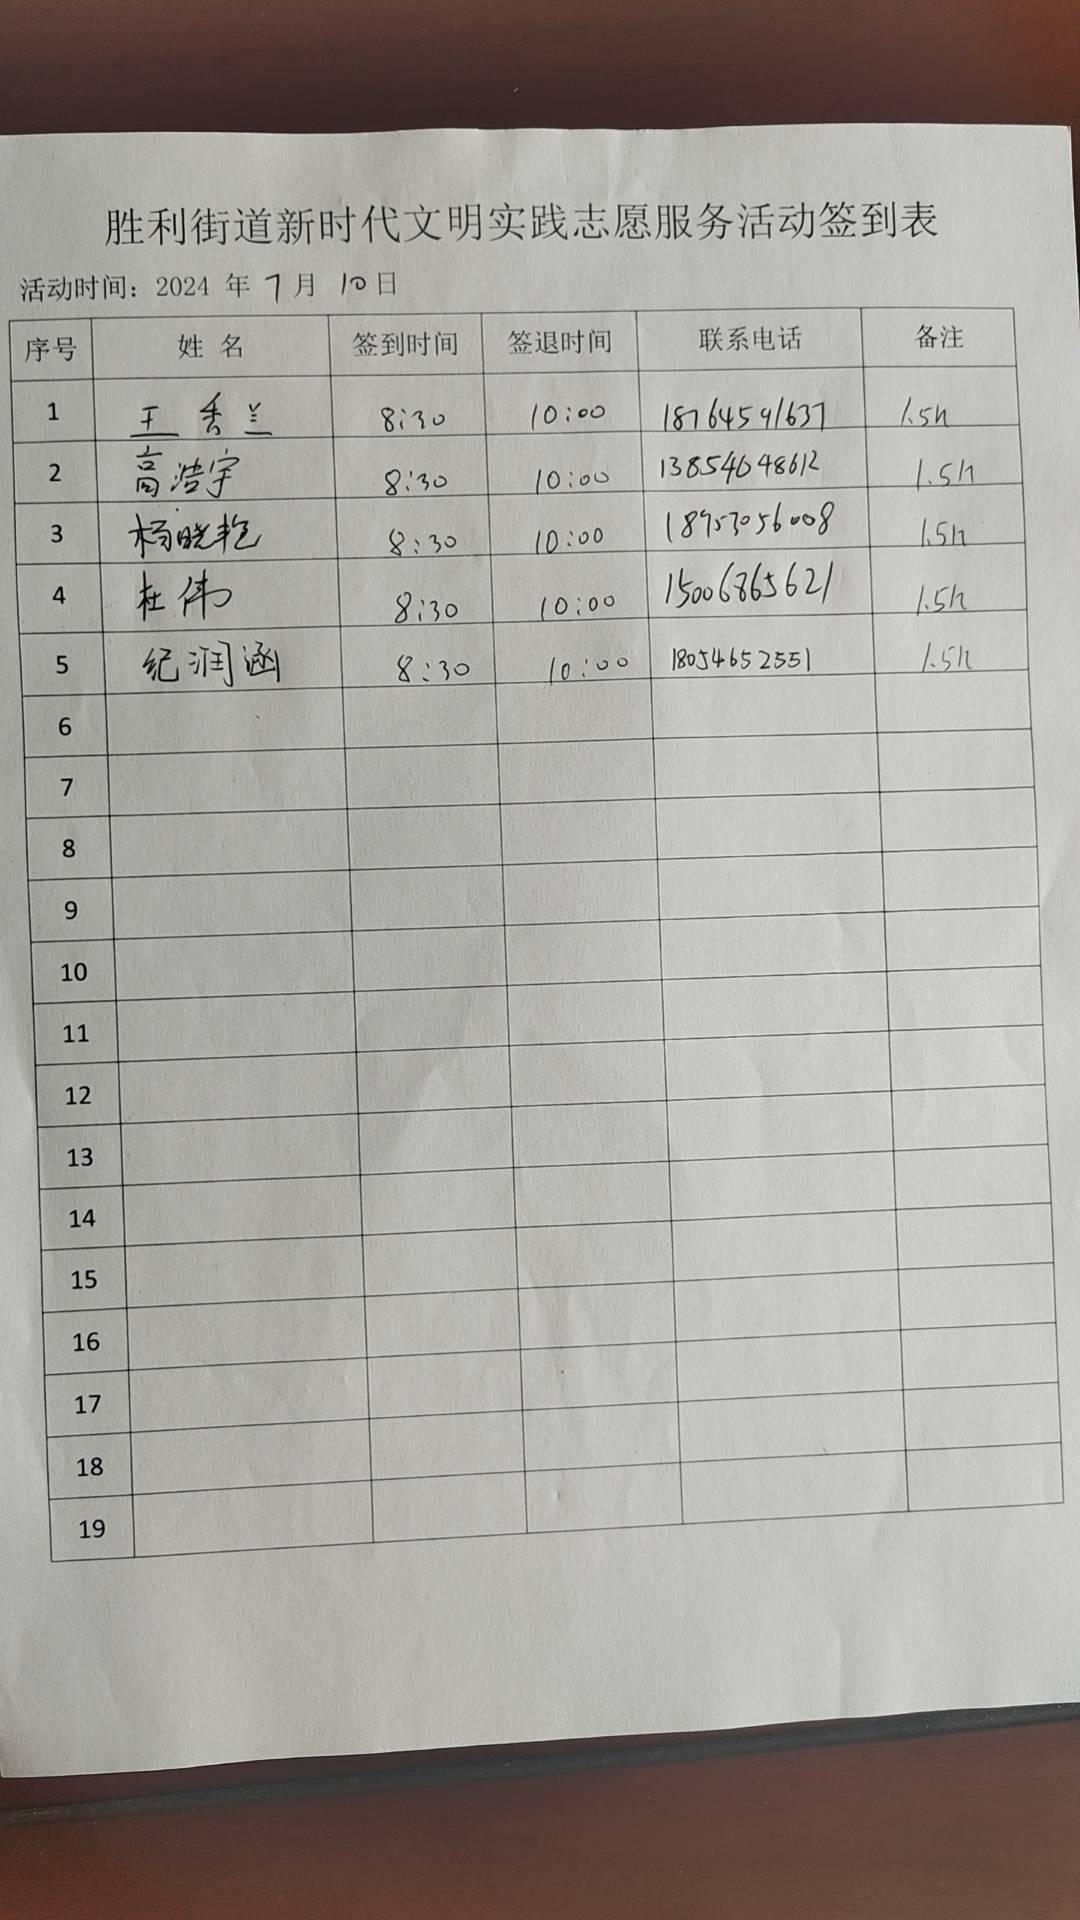 胜利街道新时代文明实践志愿服务活动签到表
活动时间：2024 年 7 月 10 日
序号 姓 名 签到时间 签退时间 联系电话 备注
1 王秀兰 8:30 10:00 18764591637 1.5h
2 高浩宇 8:30 10:00 13854648612 1.5h
3 杨晓艳 8:30 10:00 18953056008 1.5h
4 杜伟 8:30 10:00 15006865621 1.5h
5 纪润涵 8:30 10:00 18054652551 1.5h
6
7
8
9
10
11
12
13
14
15
16
17
18
19